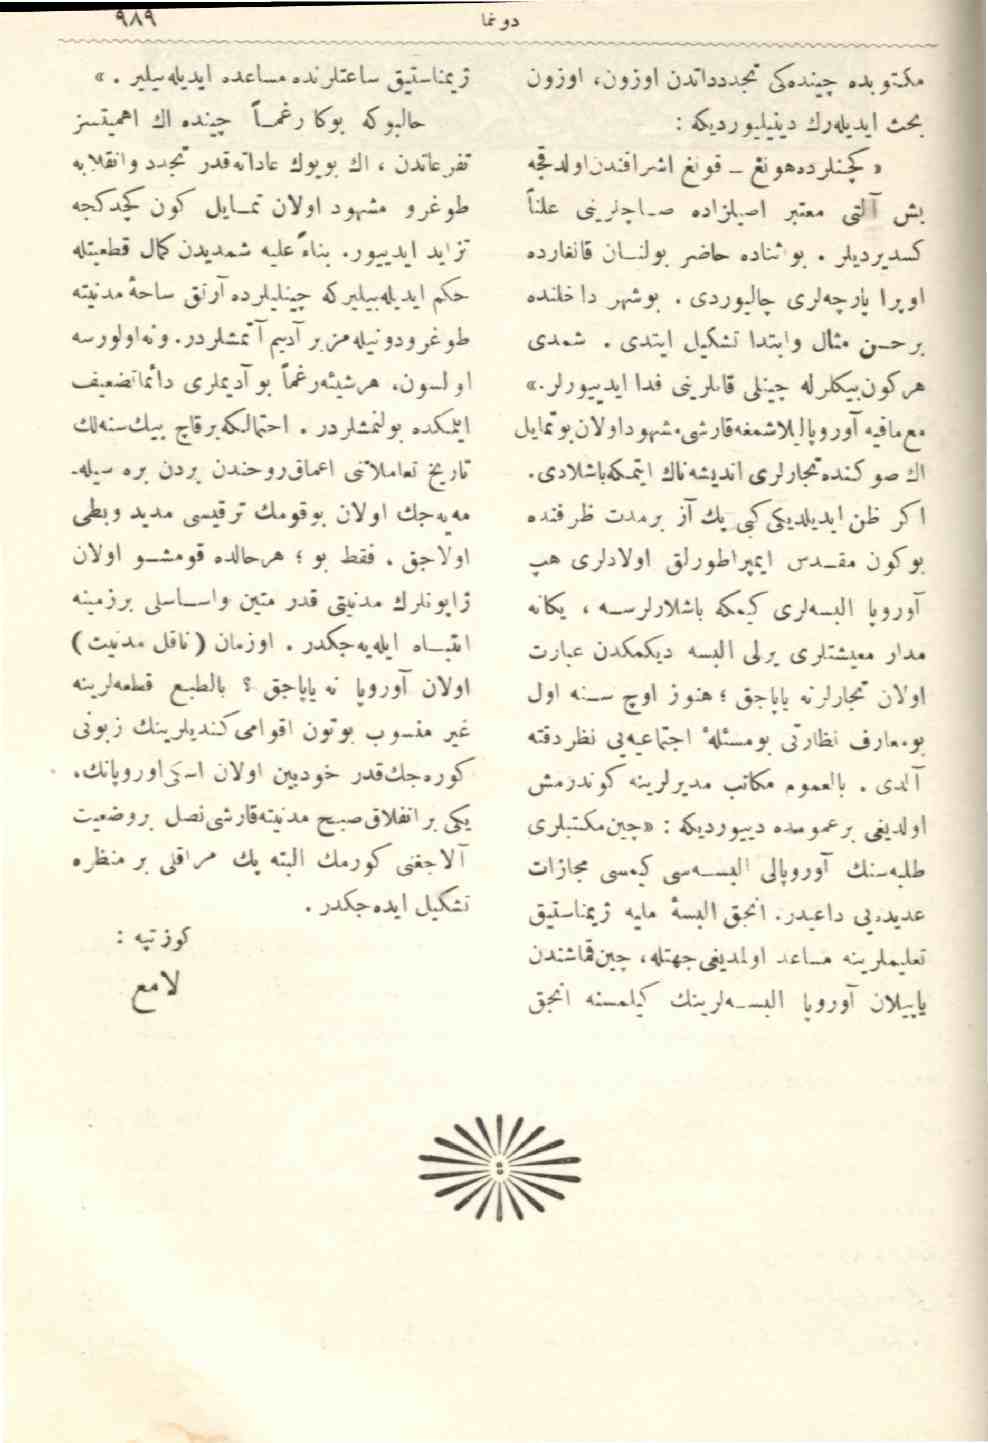 دوغما
٩٨٩
مکتوبده چینده‌کی تجدداتدن اوزون، اوزون
بحث ایدیله‌رك دینیلیوردیکه :
« کچنلرده هونغ ــ قونغ اشرافندن اولدقجه
بش آلتی معتبر اصیلزاده صاچلرینی علناً
کسدیردیلر . بو اثناده حاضر بولنــان قانغارده
اوپرا پارچه‌لری چالیوردی . بوشهر داخلنده
بر حسن مثال وابتدا تشکیل ایتدی . شمدی
هرکون بیکلرله چینلی قاتلرینی فدا ایدییورلر.»
مع‌مافیه آوروپالیلاشمغه قارشی مشهود اولان بو تمایل
اك صوکنده تجارلری اندیشه‌ناك ایتمکه باشلادی.
اکر ظن ایدیلدیکی کبی پك آز برمدت ظرفنده
بوکون مقــدس ایمپراطورلق اولادلری هپ
آوروپا البسه‌لری کیمکه باشلارلرســه ، یکانه
مدار معیشتلری یرلی البسه دیکمکدن عبارت
اولان تجارلر نه یاپاجق ؛ هنوز اوچ ســنه اول
بومعارف نظارتی بومسئلهٔ اجتماعیه‌یی نظر دقته
آلدی . بالعموم مکاتب مدیرلرینه کوندرمش
اولدیغی برعمومده دییوردیکه : «چین مکتبلری
طلبه‌سنك آوروپالی البســه‌سی کیمسی مجازات
عدیده‌یی داعیدر. انجق البسهٔ مایه ژیمناستیق
تعلیملرینه مساعد اولمدیغی جهتله، چین قماشندن
یاپیلان آوروپا البســه‌لرینك کیلمسنه انجق
ژیمناستیق ساعتلرنده مساعده ایدیله‌بیلیر . »
حالبوکه بوکا رغمــاً چینده اك اهمیتسز
تفرعاتدن ، اك بویوك عاداته قدر تجدد وانقلابه
طوغرو مشهود اولان تمــایل کون کچدکجه
تزاید ایدییور. بناءً علیه شمدیدن کمال قطعیتله
حکم ایدیله‌بیلیرکه چینلیلرده آرتق ساحهٔ مدنیته
طوغرو دونیله‌مز بر آدیم آتمشلردر. ونه اولورسه
اولسون، هرشیئه رغماً بو آدیملری دائما تضعیف
ایتمکده بولنمشلردر . احتمالکه برقاچ بیك سنه‌لك
تاریخ تعاملاتنی اعماق روحندن بردن بره سیله‌ـ
مه‌یه‌جك اولان بوقومك ترقیسی مدید وبطی
اولاجق . فقط بو ؛ هرحالده قومشــو اولان
ژاپونلرك مدنیتی قدر متین واســاسلی برزمینه
انتبــاه ایله‌یه‌جکدر . اوزمان ( ناقل مدنیت )
اولان آوروپا نه یاپاجق ؟ بالطبع قطعه‌لرینه
غیر منسوب بوتون اقوامی کندیلرینك زبونی
کوره‌جك قدر خودبین اولان اسکی اوروپانك،
یکی بر انفلاق صبح مدنیته قارشی نصل بر وضعیت
آلاجغنی کورمك البته پك مراقلی بر منظره
تشکیل ایده‌جکدر .
کوزتپه :
لامع